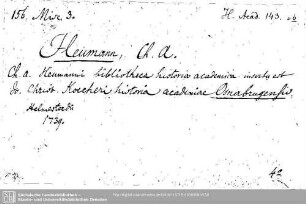 156. Misc. 3. H. Acad. 143.
Heumann, Ch. A.
Ch. A. Heumanni bibliotheca historia academica inserta est
Jo. Christ. Kocheri historia academiae Osnabrugensis
Helmestadi
1739.
4°
Sächsische Landesbibliothek -
Staats- und Universitätsbibliothek Dresden